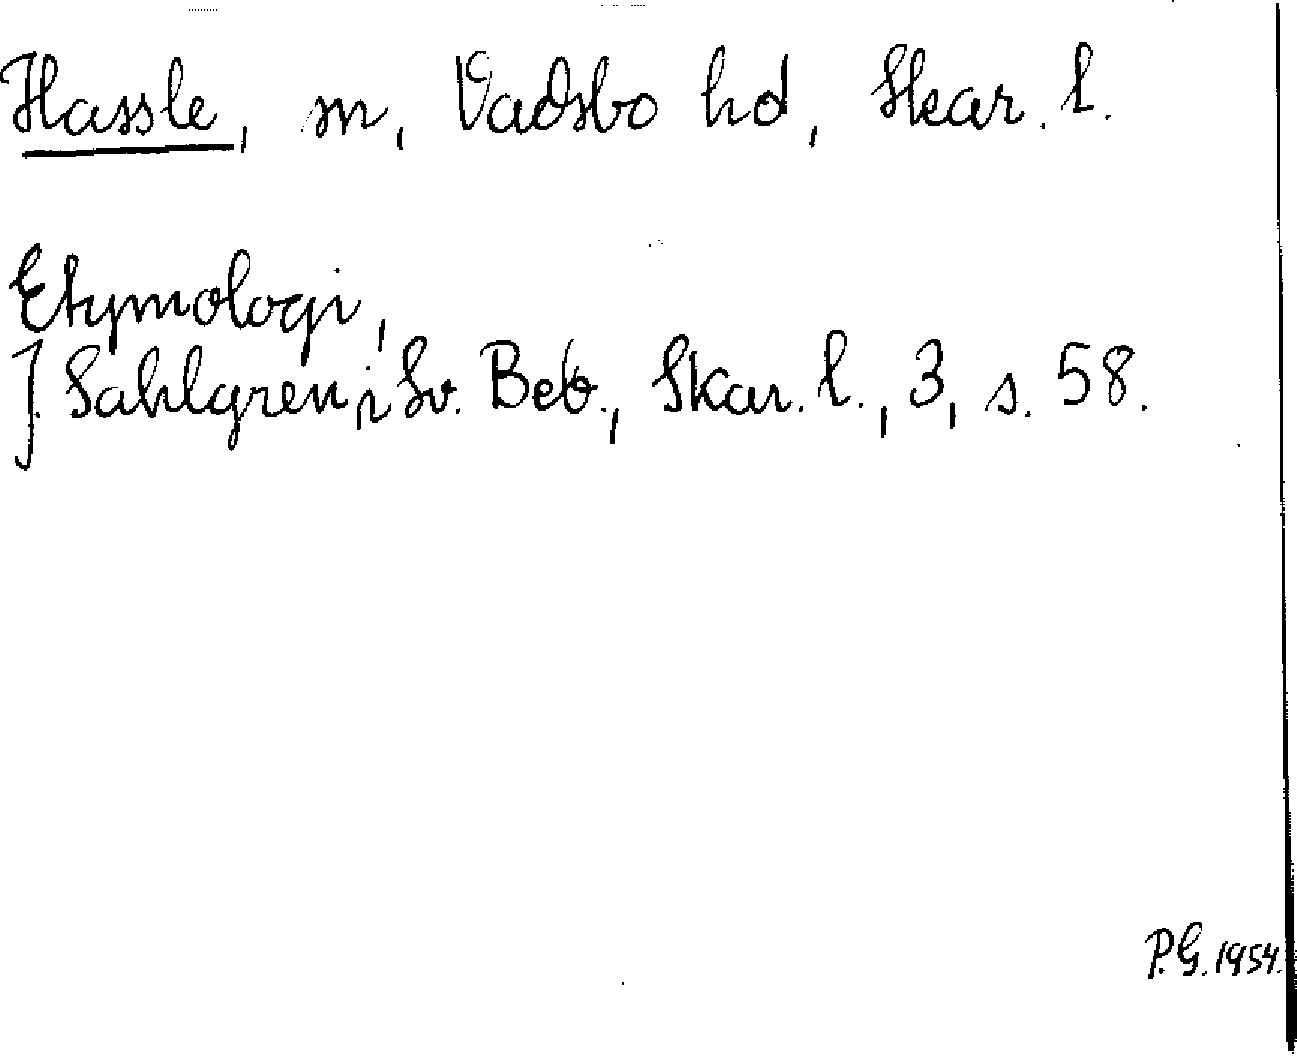 Hassle, sn, Vadsbo hd, Skar. l.
Etymologi,
J. Sahlgren i Sv. Beb., Skar. l., 3, s. 58.
P.G. 1954.